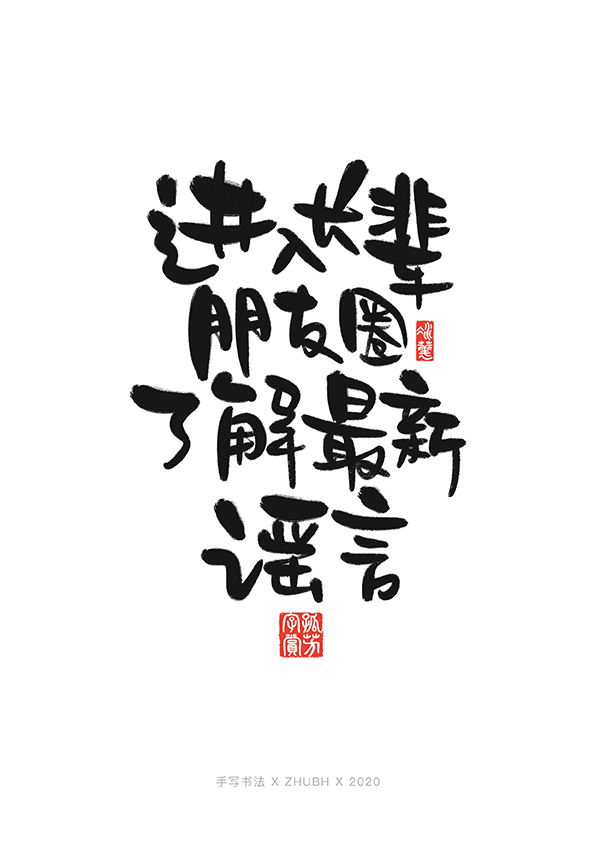 进入长辈
朋友圈
了解最新
谣言
孤芳
字赏
手写书法 X ZHUBH X 2020